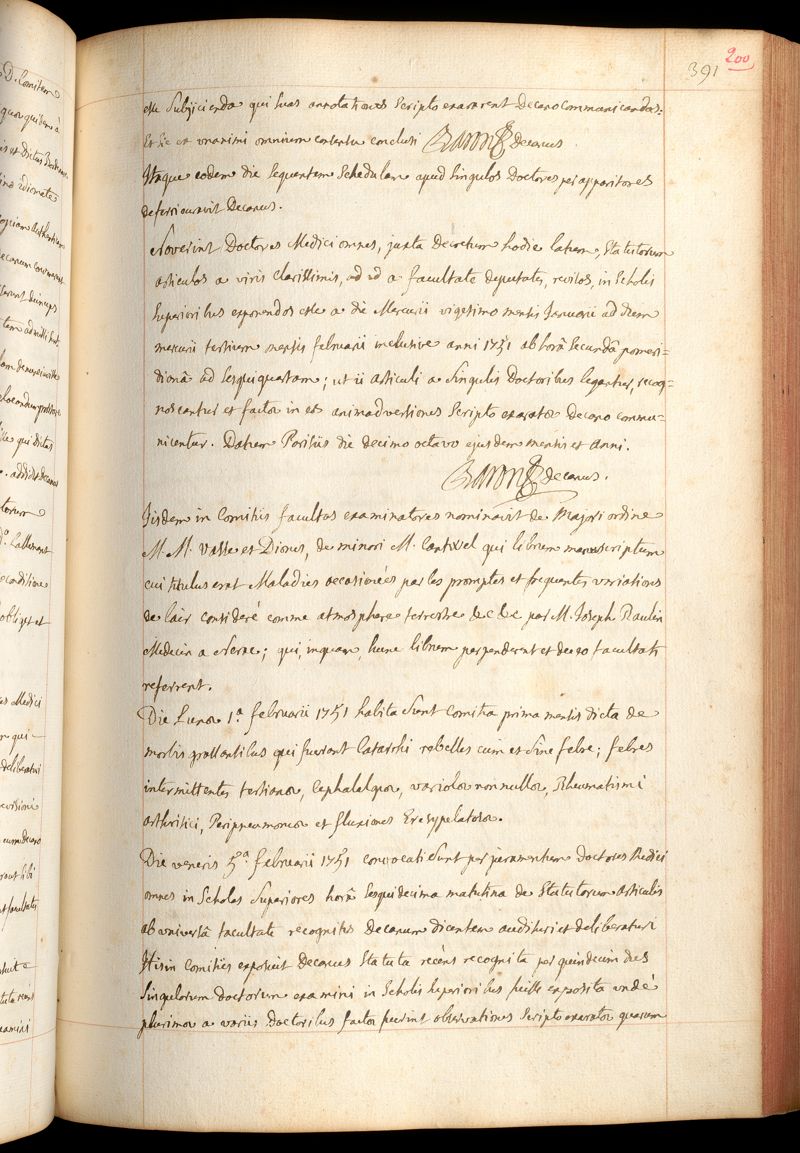 391 200
esse subjicienda qui suas annotationes scripto exararent Decano communicandas:
Et sic et unanimi omnium consensu conclusi Baron Decanus
Itaque eodem die sequentem schedulam apud singulos Doctores per apparitores
deferri curavit Decanus.
Noverint Doctores Medici omnes, juxta decretum hodie latum, statutorum
articulos a viris clarissimis, ad id a facultate deputatis, revisos, in scholis
superioribus exponendos esse a die Mercurii vigesimo mensis Januarii ad diem
mercurii tertium mensis februarii inclusive anni 1751 ab horâ secundâ pomeri=
dianâ ad sesquiquartam; ut ii articuli a singulis Doctoribus legantur, recog=
noscantur et factæ in eos animadversiones scripto exaratæ Decano commu=
nicentur. Datum Parisiis die decimo octavo ejusdem mensis et anni.
Baron Decanus.
Iisdem in Comitiis facultas examinatores nominavit de Majori ordine
M. M. Vasse et Dionis, de minori M. Cantwel qui librum manuscriptum
cui titulus erat Maladies occasionées par les promptes et frequentes variations
de l'air consideré comme atmosphere terrestre &c &c par M. Joseph Raulin
Medecin a Nerac; qui, inquam, hunc librum perpenderent et de eo facultati
referrent.
Die Lunæ 1.ª februarii 1751 habita sunt comitia prima mensis dicta de
morbis grassantibus qui fuerunt Catarrhi rebelles cum et sine febre; febres
intermittentes tertianæ, Cephalalgiæ, variolæ nonnullæ, Rheumatismi
arthritici, Peripneumoniæ et fluxiones Eresypelatosæ.
Die veneris 5.ª februarii 1751 convocati sunt per juramentum doctores Medici
omnes in Scholas superiores horâ sesquidecima matutina de statutorum articulis
ab universâ facultate recognitis decanum dicentem audituri et deliberaturi
His in Comitiis exposuit Decanus Statuta recèns recognita per quindecim dies
singulorum doctorum examini in scholis superioribus fuisse exposita undè
plurimæ a variis Doctoribus factæ fuerint observationes scripto exaratæ quarum